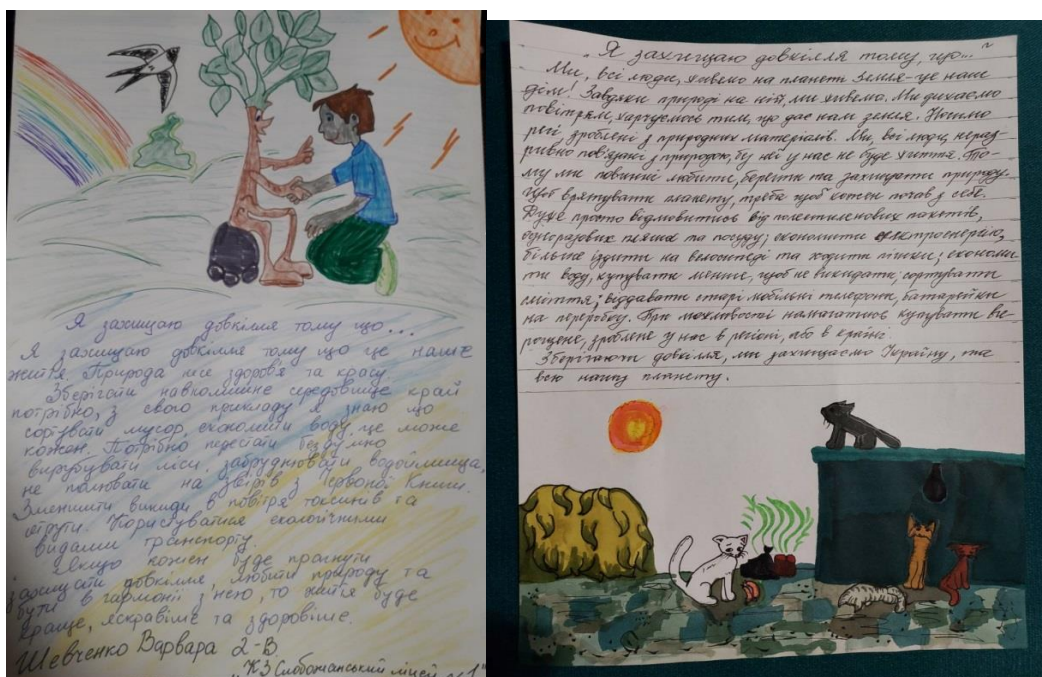 Я захищаю довкілля тому що...
Я захищаю довкілля тому що це наше
життя. Природа несе здоров'я та красу.
Зберігати навколишнє середовище край
потрібно, з свого прикладу я знаю що
сортувати мусор, економити воду, це може
кожен. Потрібно перестати бездумно
вирубувати ліси, забруднювати водоймища,
не полювати на звірів з Червоної Книги.
Зменшити викиди в повітря токсинів та
отрути. Користуватися екологічними
видами транспорту.
Якщо кожен буде прагнути
захистити довкілля, любити природу та
бути в гармонії з нею, то життя буде
краще, яскравіше та здоровіше.
Шевченко Варвара 2-В
"КЗ Слобожанський ліцей №1"
„Я захищаю довкілля тому, що..."
Ми, всі люди, живемо на планеті Земля - це наш
дім! Завдяки природі на ній, ми живемо. Ми дихаємо
повітрям, харчуємось тим, що дає нам земля. Носимо
речі, зроблені з природних матеріалів. Ми, всі люди, нераз-
ривно пов'язані з природою, без неї у нас не буде життя. То-
му ми повинні любити, берегти та захищати природу.
Щоб врятувати планету, треба щоб кожен почав з себе.
Дуже просто відмовитись від полиетиленових пакетів,
одноразових пляшок та посуду; економити електроенергію,
більше їздити на велосипеді та ходити пішки; економи
ти воду, купувати менше, щоб не викидати, сортувати
сміття; віддавати старі мобільні телефони, батарейки
на переробку. При можливості намагатись купувати ви-
рощене, зроблене у нас в регіоні, або в країні.
Зберігаючи довкілля, ми захищаємо Україну, та
всю нашу планету.